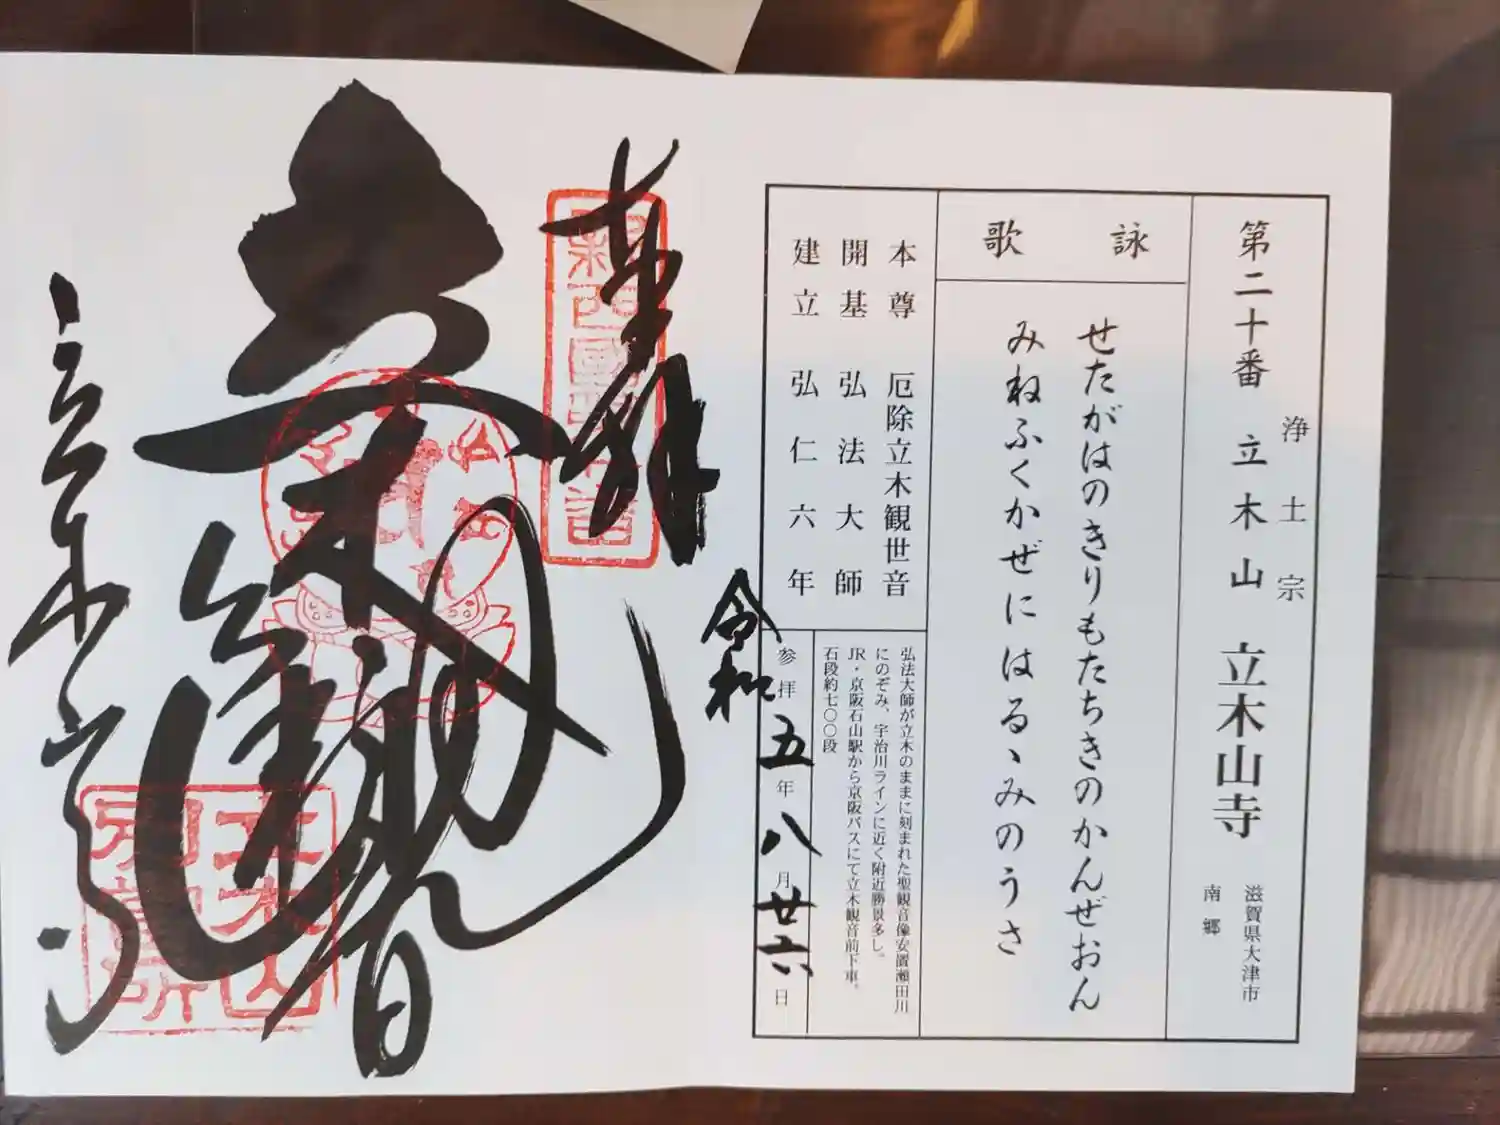 第二十番 立木山 立木山寺
浄土宗
滋賀県大津市
南郷
詠歌
せたがはのきりもたちきのかんぜおん
みねふくかぜにはるゝみのうさ
本尊 厄除立木観世音
開基 弘法大師
建立 弘仁六年
弘法大師が立木のままに刻まれた聖観音像安置瀬田川
にのぞみ、宇治川ラインに近く附近勝景多し。
JR・京阪石山駅から京阪バスにて立木観音前下車。
石段約七〇〇段
参拝
令和五年八月廿六日
奉拝
立木山